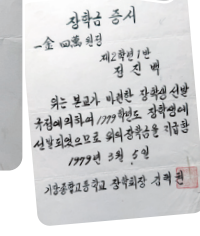 장학금 증서
一金 四萬 원정
제2학년 1반
정진백
위는 본교가 마련한 장학생 선발
규정에 의하여 1979학년도 장학생에
선발되었으므로 위의 장학금을 지급함
1979년 3월 5일
종합고등학교 장학회장